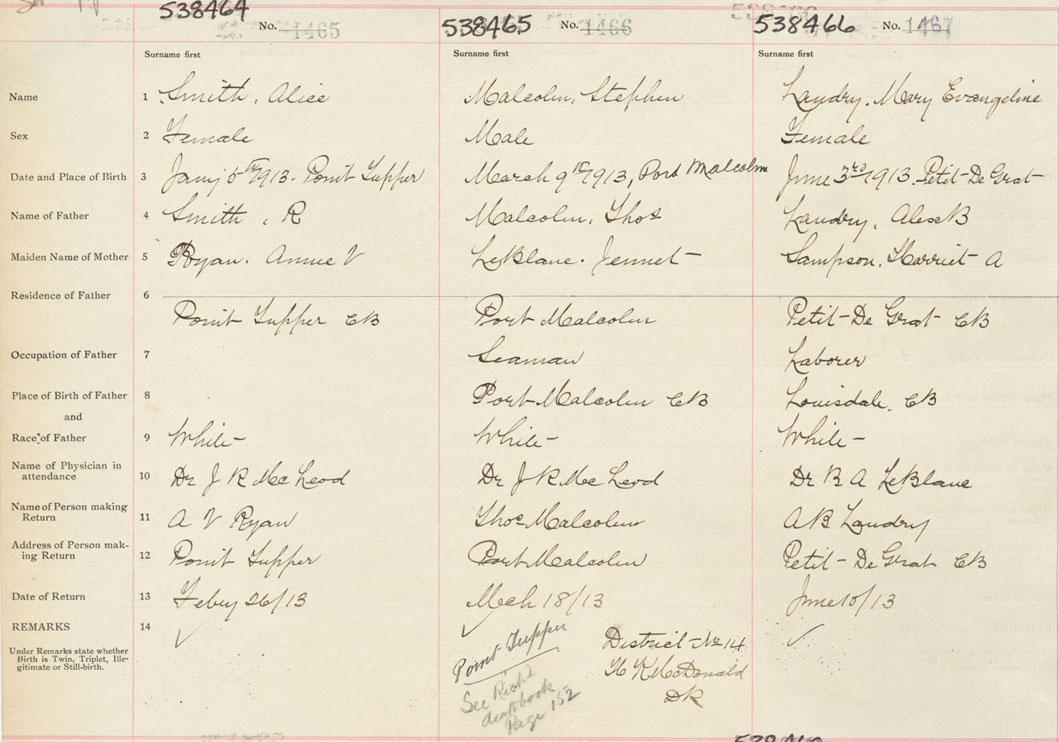 538464 No. 1465 538465 No. 1466 538466 No. 1467
Surname first Surname first Surname first
Name 1 Smith, Alice Malcolm, Stephen Landry, Mary Evangeline
Sex 2 Female Male Female
Date and Place of Birth 3 Jany 5th 1913. Point Tupper March 9th 1913, Port Malcolm June 3rd 1913. Petit-De Grat
Name of Father 4 Smith, R Malcolm, Thos Landry, Alex B
Maiden Name of Mother 5 Ryan, Annie V LeBlanc. Jennet Sampson, Harriet A
Residence of Father 6
Point Tupper CB Port Malcolm Petit-De Grat CB
Occupation of Father 7 Seaman Laborer
Place of Birth of Father 8 Port Malcolm CB Louisdale, CB
and
Race of Father 9 White White White
Name of Physician in
attendance 10 Dr J R McLeod Dr J R McLeod Dr B A LeBlanc
Name of Person making
Return 11 A V Ryan Thos Malcolm A B Landry
Address of Person mak-
ing Return 12 Point Tupper Port Malcolm Petit-De Grat CB
Date of Return 13 Feby 26/13 Mch 18/13 June 10/13
REMARKS 14
Under Remarks state whether
Birth is Twin, Triplet, Ille-
gitimate or Still-birth.
Point Tupper
See Richd
deathbook
Page 152
District No 14
McDonald
DR